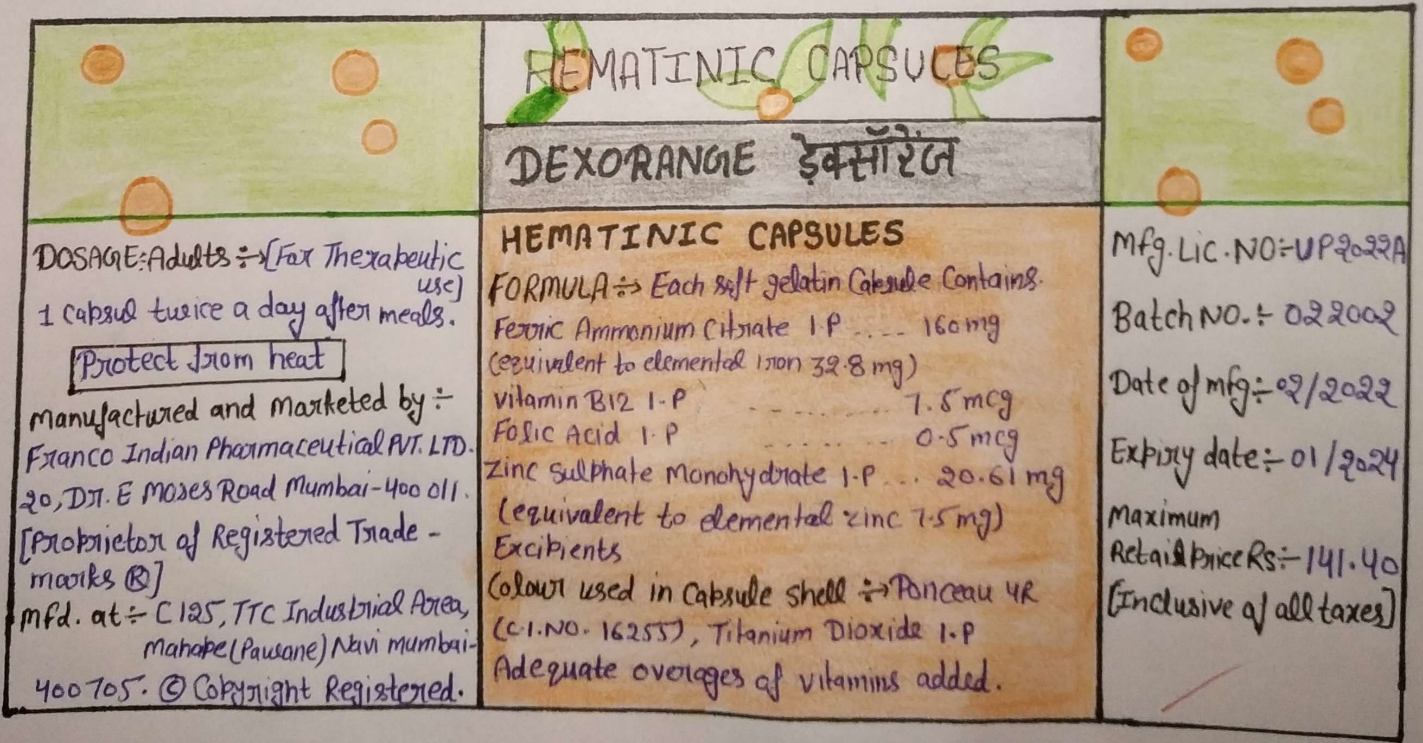 HEMATINIC CAPSULES
DEXORANGE ड़ेक्सॉरेंज
DOSAGE:Adults ÷→[For Therapeutic
use]
1 Capsul twice a day after meals.
Protect from heat
manufactured and marketed by ÷
Franco Indian Pharmaceutical PVT. LTD.
20, Dr. E Moses Road Mumbai-400 011.
[Proprietor of Registered Trade -
marks ®]
mfd. at ÷ C 125, TTC Industrial Area,
Mahape (Pawane) Navi mumbai-
400 705. © Copyright Registered.
HEMATINIC CAPSULES
FORMULA ÷→ Each soft gelatin Capsule Contains.
Ferric Ammonium Citrate I.P ..... 160 mg
(equivalent to elemental iron 32.8 mg)
vitamin B12 I.P ............ 7.5 mcg
Folic Acid I.P ............ 0.5 mcg
Zinc Sulphate Monohydrate I.P ... 20.61 mg
(equivalent to elemental zinc 7.5 mg)
Excipients
Colour used in Capsule shell ÷→ Ponceau 4R
(C.I.NO. 16255), Titanium Dioxide I.P
Adequate overages of vitamins added.
Mfg. Lic. NO ÷ UP2022A
Batch NO. ÷ 022002
Date of mfg ÷ 02/2022
Expiry date ÷ 01/2024
Maximum
Retail price Rs ÷ 141.40
[Inclusive of all taxes]